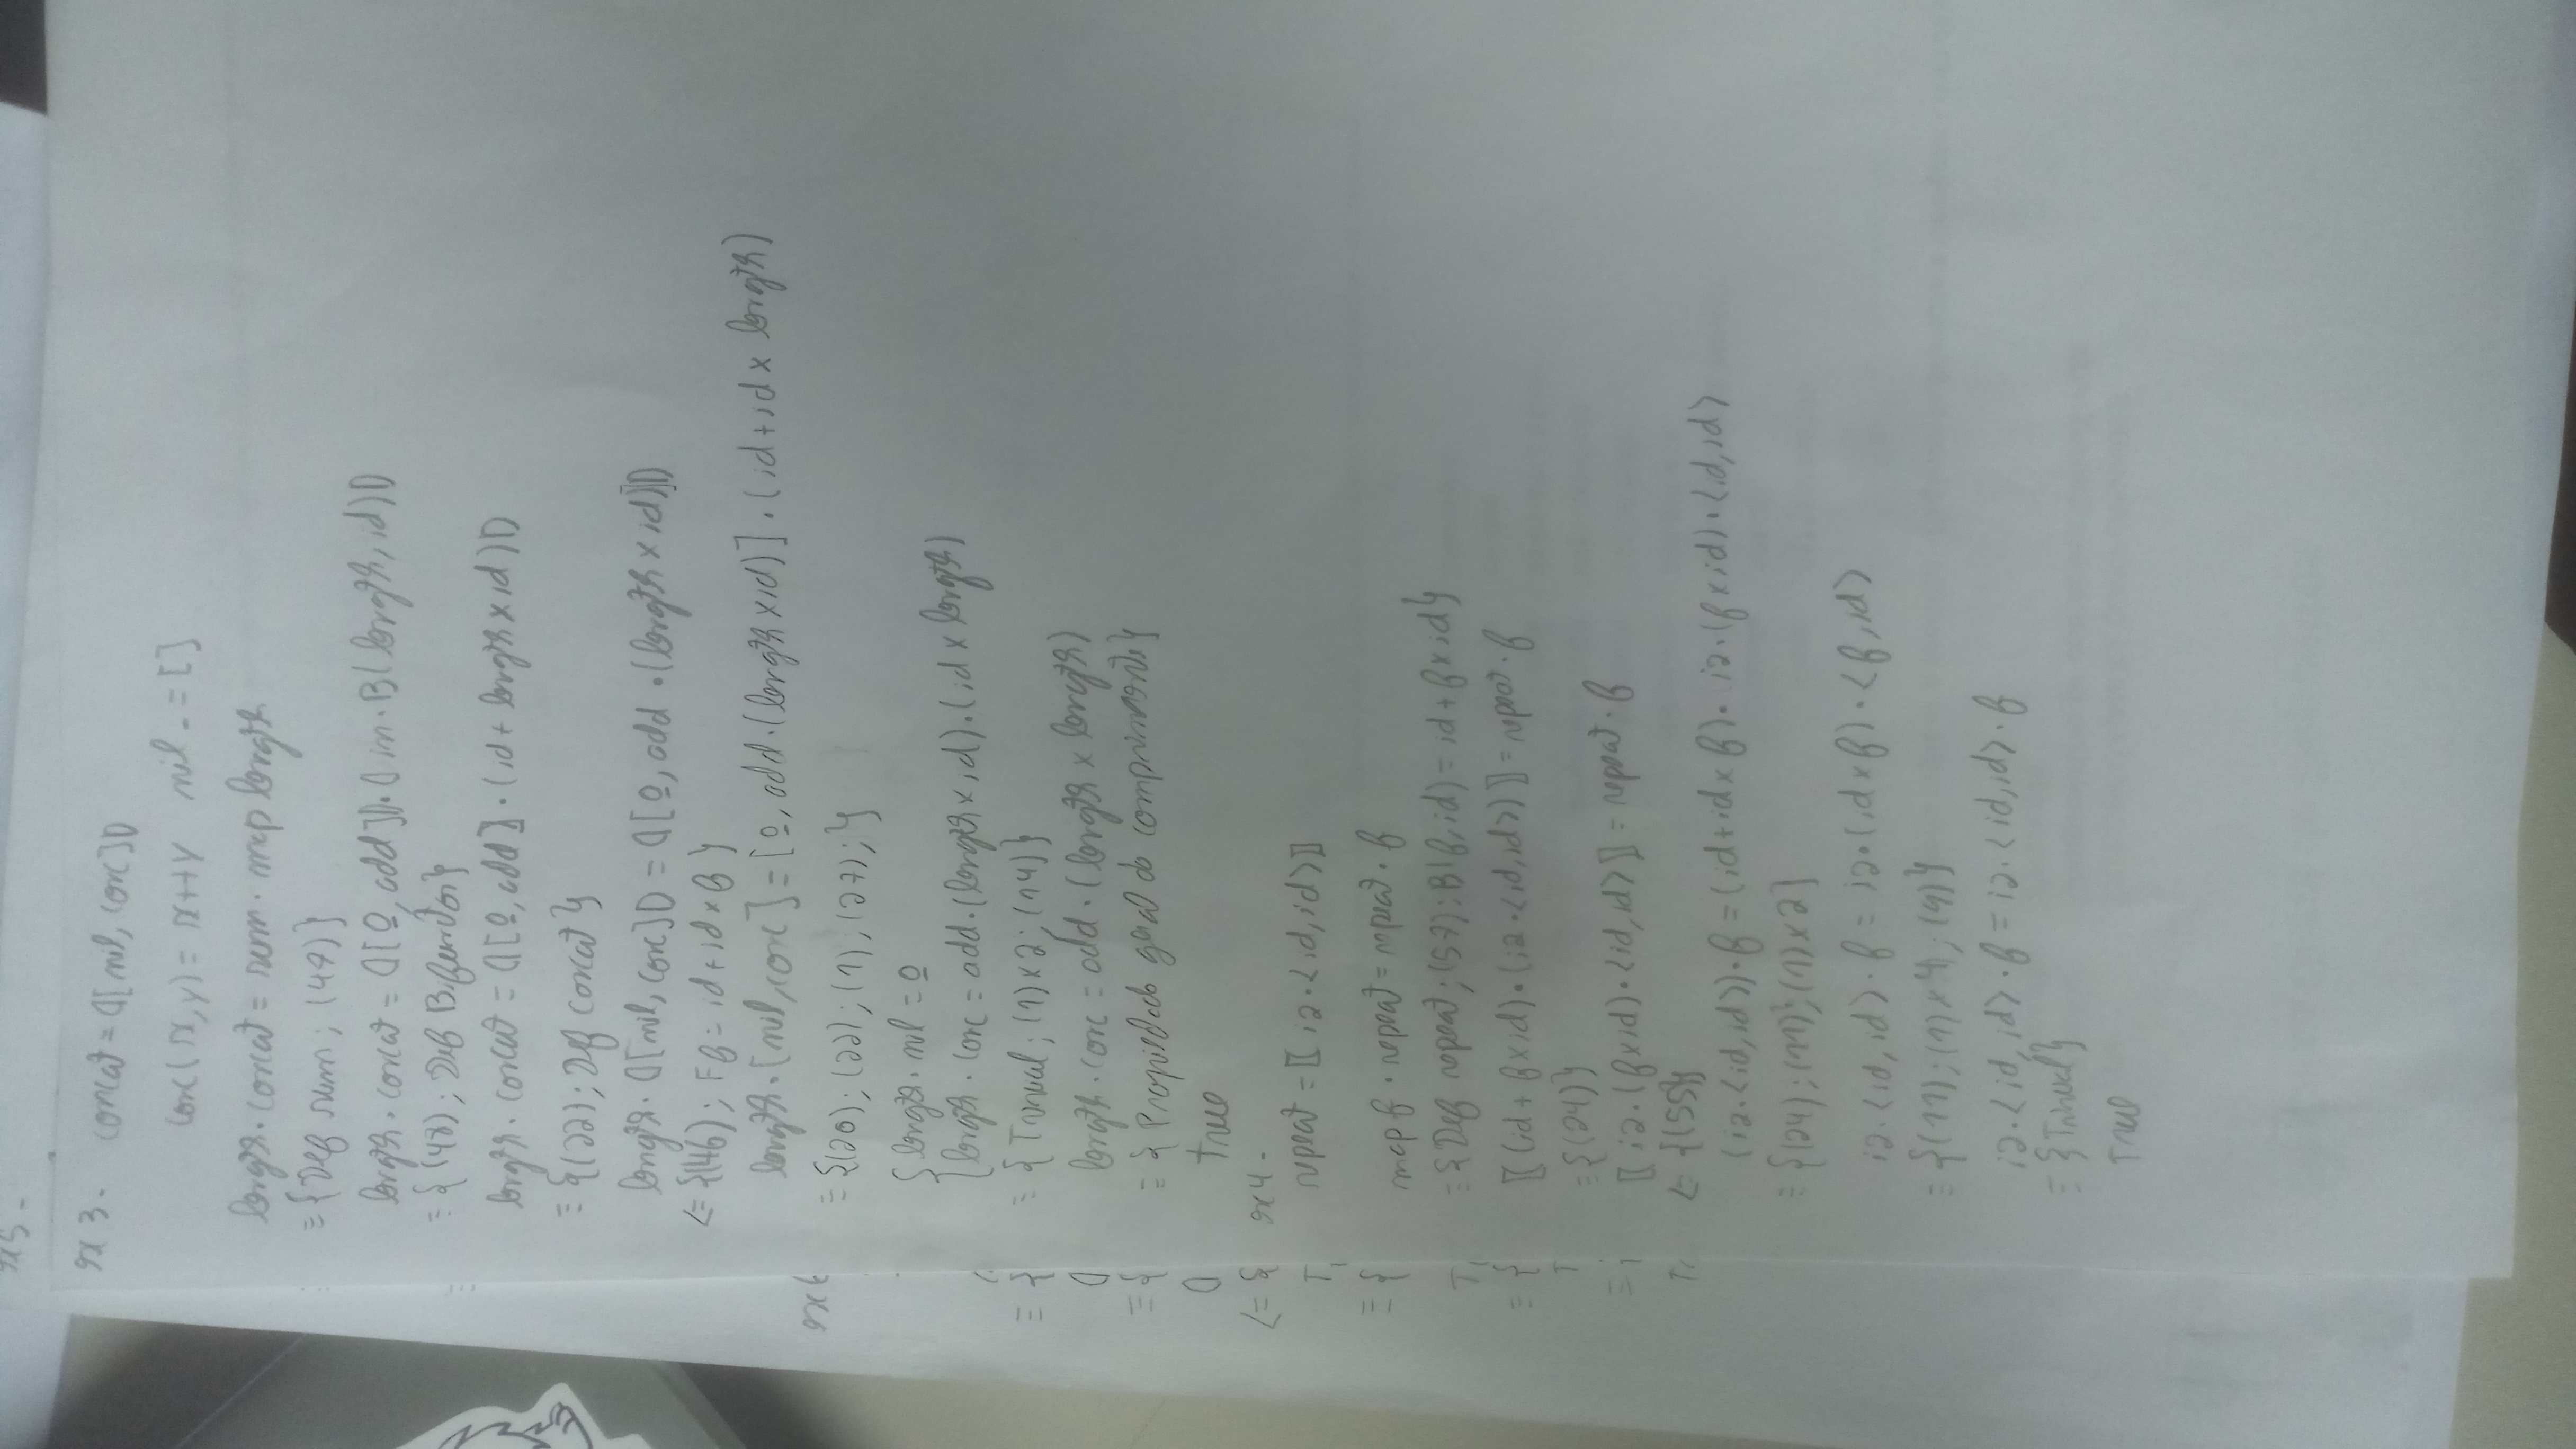 ex 3.
concat = ⦇[nil, conc]⦈
conc (x, y) = x ++ y   nil _ = []
length · concat = sum · map length
≡ { Def sum ; (47) }
length · concat = ⦇[0, add]⦈ · ⦇in · B(length, id)⦈
≡ { (48) ; Def Bifunctor }
length · concat = ⦇[0, add] · (id + length × id)⦈
≡ { (22) ; Def concat }
length · ⦇[nil, conc]⦈ = ⦇[0, add · (length × id)]⦈
<= { (46) ; F f = id + id × f }
length · [nil, conc] = [0, add · (length × id)] · (id + id × length)
≡ { (20) ; (22) ; (1) ; (27) ; }
{ length · nil = 0
{ length · conc = add · (length × id) · (id × length)
≡ { Trivial ; (1) × 2 ; (14) }
length · conc = add · (length × length)
≡ { Propriedade geral do comprimento }
True
ex 4.
repeat = 〖i2 · <id, id>〗
map f · repeat = repeat · f
≡ { Def repeat ; (57) ; B(f, id) = id + f × id }
〖(id + f × id) · (i2 · <id, id>)〗 = repeat · f
≡ { (24) }
〖i2 · (f × id) · <id, id>〗 = repeat · f
<= { (55) }
(i2 · <id, id>) · f = (id + id × f) · (i2 · (f × id) · <id, id>
≡ { (24) ; (11) ; (1) × 2 }
i2 · <id, id> · f = i2 · (id × f) · <f, id>
≡ { (11) ; (1) × 4 ; (9) }
i2 · <id, id> · f = i2 · <id, id> · f
≡ { Trivial }
True